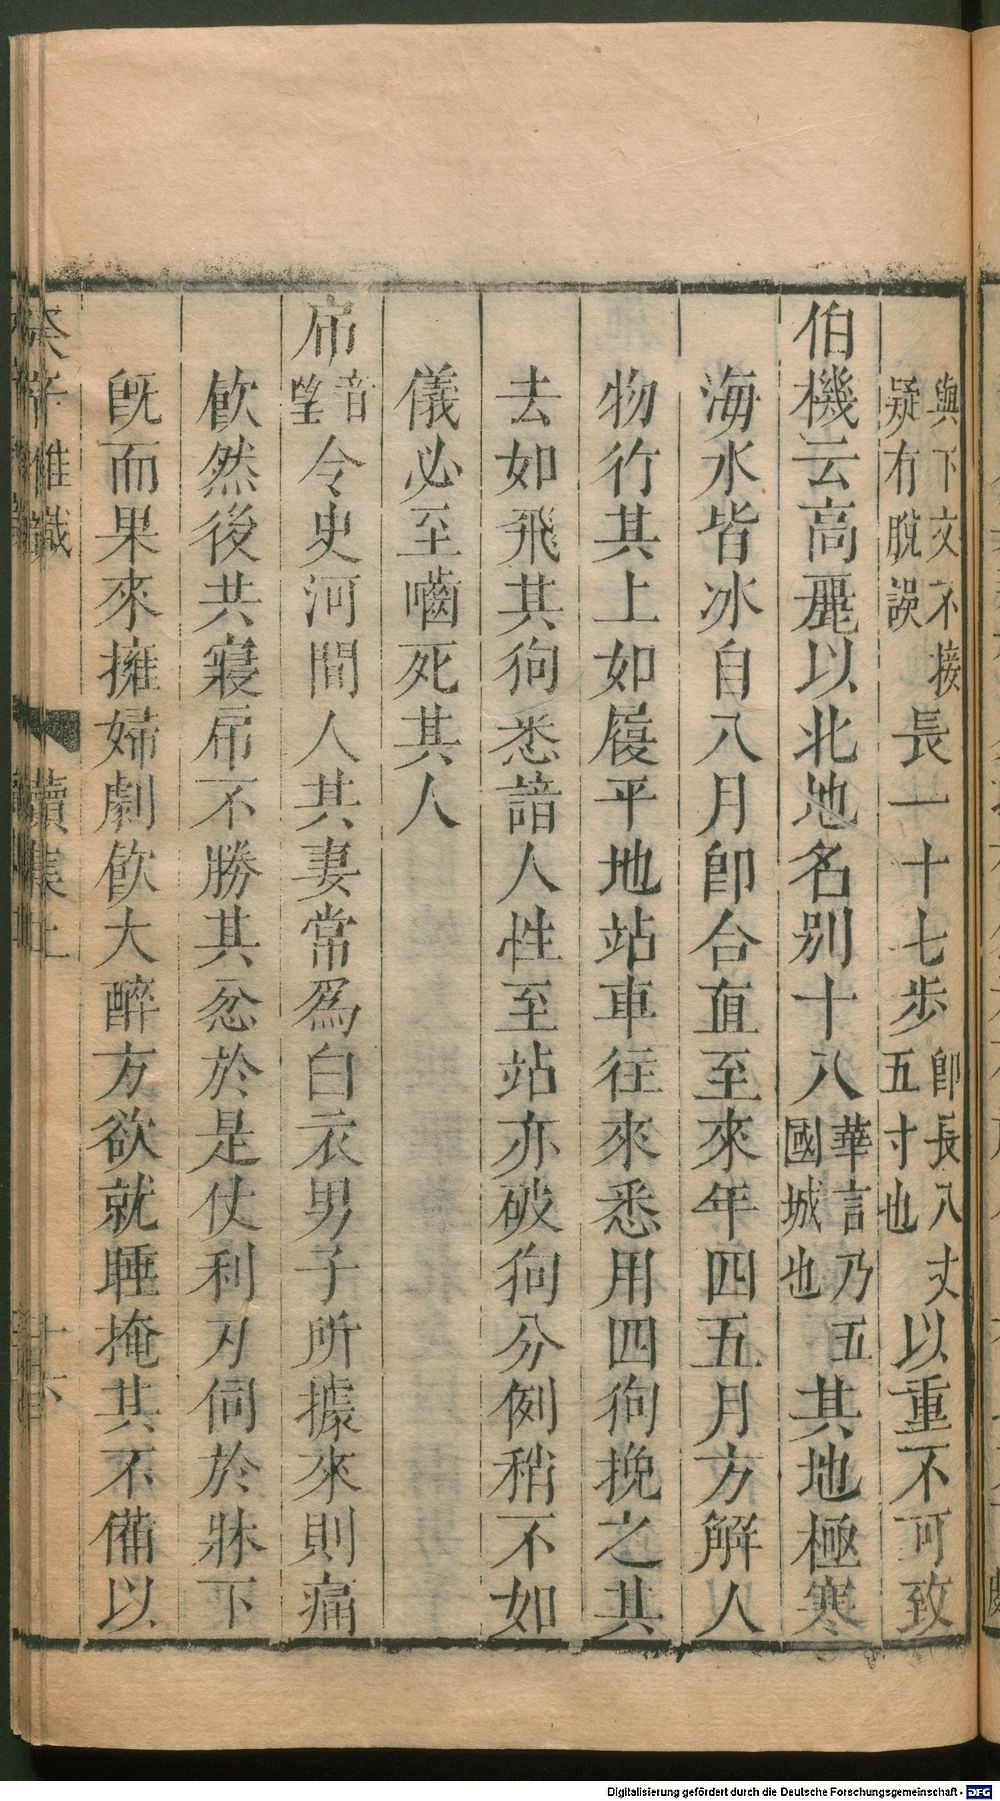 與下文不接
疑有脫誤
長一十七步
卽長八丈
五寸也
以重不可致
伯機云高麗以北地名別十八
華言乃五
國城也
其地極寒
海水皆冰自八月卽合直至來年四五月方解人
物行其上如履平地站車往來悉用四狗挽之其
去如飛其狗悉諳人性至站亦破狗分例稍不如
儀必至嚙死其人
音
望
令史河間人其妻常爲白衣男子所據來則痛
飲然後共寢不勝其忿於是仗利刃伺於牀下
旣而果來擁婦劇飲大醉方欲就睡掩其不備以
癸辛雜識
續集上
十六
Digitalisierung gefördert durch die Deutsche Forschungsgemeinschaft - DFG